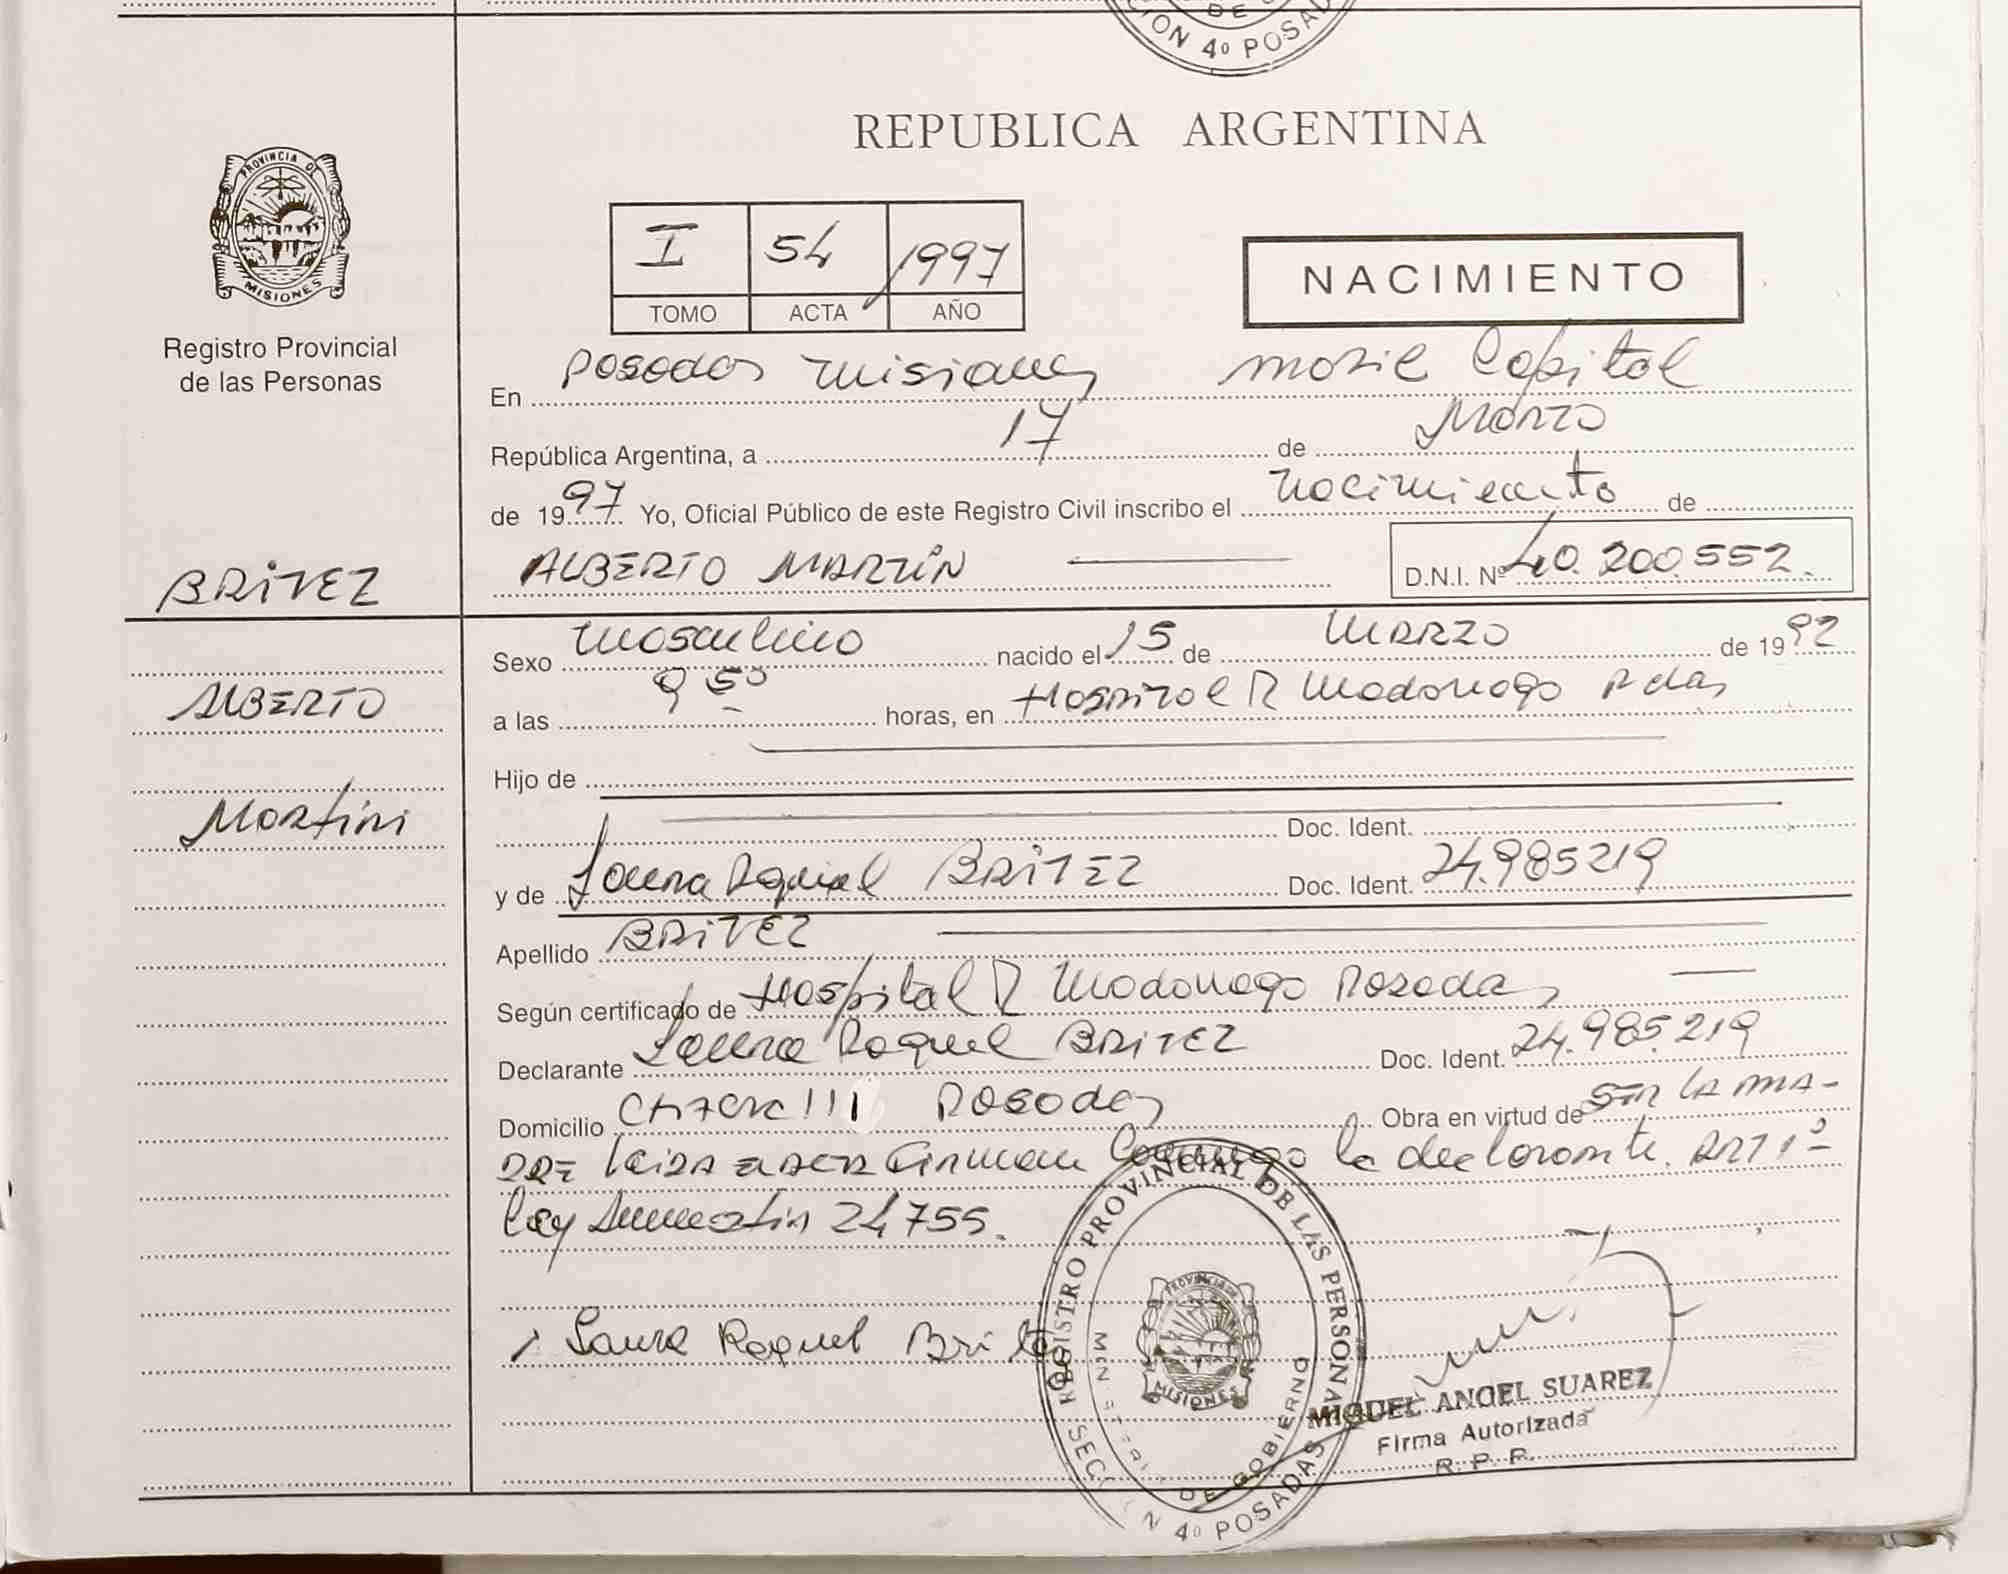 DE
CION 4º POSADAS
REPUBLICA ARGENTINA
PROVINCIA DE
MISIONES
Registro Provincial
de las Personas
I 54 1997
TOMO ACTA AÑO
NACIMIENTO
En Posadas Misiones Capital
República Argentina, a 17 de Marzo
de 1997 Yo, Oficial Público de este Registro Civil inscribo el nacimiento de
BRITEZ ALBERTO MARTIN D.N.I. Nº 40.200.552.
Sexo Masculino nacido el 15 de MARZO de 1992
ALBERTO
a las 9 50 horas, en Hospital R Madariaga Pdas
Hijo de
Martin
Doc. Ident.
y de Laura Raquel BRITEZ Doc. Ident. 24.985219
Apellido BRITEZ
Según certificado de Hospital R Madariaga Posadas
Declarante Laura Raquel BRITEZ Doc. Ident. 24.985.219
Domicilio Posadas Obra en virtud de SER LA MA-
DRE leida Firman Conmigo la declarante. ART 1º
Ley 24755.
Laura Raquel Britez
REGISTRO PROVINCIAL DE LAS PERSONAS
PROVINCIA DE
MISIONES
MINISTERIO DE GOBIERNO
SECCION 4º POSADAS
MIGUEL ANGEL SUAREZ
Firma Autorizada
R. P. P.